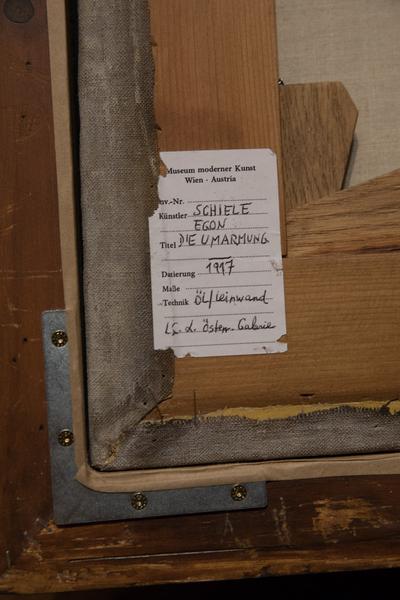 Museum moderner Kunst
Wien - Austria
nv.-Nr.
Künstler SCHIELE
EGON
Titel DIE UMARMUNG
Datierung 1917
Maße
Technik ÖL/Leinwand
Österr. Galerie